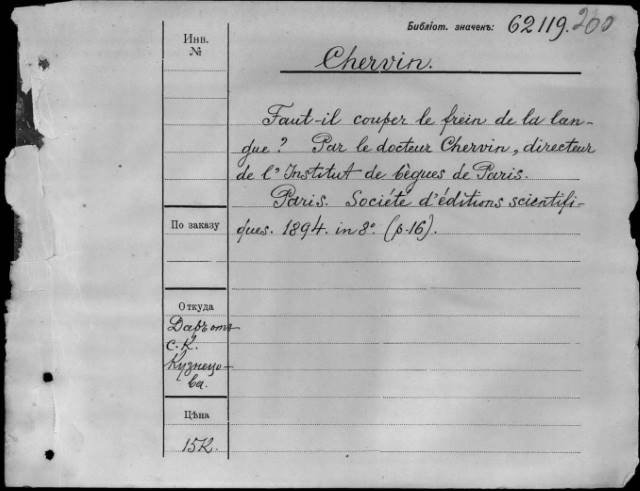 Библiот. значекъ: 62119.200
Инв.
№
Chervin.
Faut-il couper le frein de la lan-
gue? Par le docteur Chervin, directeur
de l'Institut de bègues de Paris.
Paris. Société d'éditions scientifi-
ques. 1894. in 8º. (p. 16).
По заказу
Откуда
Даръ отъ
С. К.
Кузнецо-
ва.
Цѣна
15К.